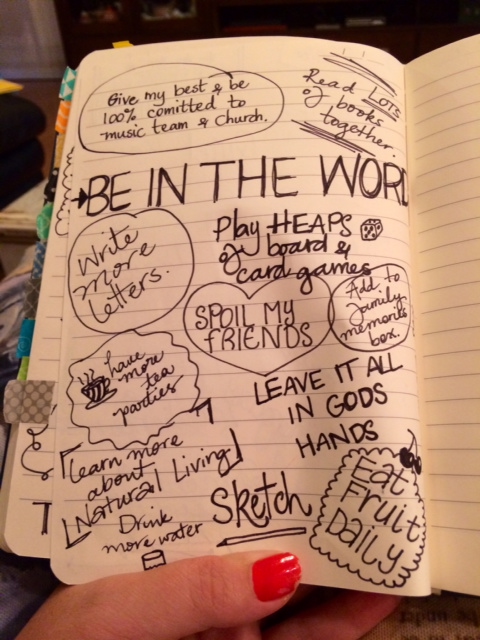 Give my best & be
100% comitted to
music team & church.
Read LOTS
of books
together.
BE IN THE WORD
Write
more
letters.
Play HEAPS
of board &
card games
SPOIL MY
FRIENDS
Add to
family
memories
box.
have
more
tea
parties
LEAVE IT ALL
IN GODS
HANDS
Learn more
about
Natural Living
Drink
more water
Sketch
Eat
Fruit
Daily